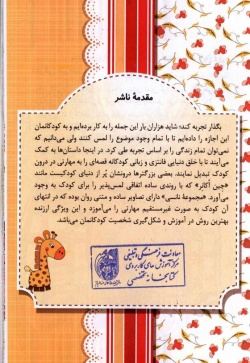 مقدمهٔ ناشر
بگذار تجربه کند؛ شاید هزاران بار این جمله را به کار برده‌ایم و به کودکانمان
این اجازه را داده‌ایم تا با تمام وجود موضوع را لمس کنند ولی می‌دانیم که
نمی‌توان تمام زندگی را بر اساس تجربه طی کرد. در اینجا داستان‌ها به کمک
می‌آیند تا با خلق دنیایی فانتزی و زبانی کودکانه قصه‌ای را به مهارتی در درون
کودک تبدیل نمایند. بعضی بزرگترها درونشان پُر از دنیای کودکیست مانند
«چین آکار» که با روندی ساده اتفاقی لمس‌پذیر را برای کودک به وجود
می‌آورد. «مجموعهٔ نانسی» دارای تصاویر ساده و متنی روان بوده که در انتهای
آن کودک به صورت غیرمستقیم مهارتی را می‌آموزد و این ویژگی ارزنده
بهترین روش در آموزش و شکل‌گیری شخصیت کودکانمان می‌باشد.
معاونت فرهنگی و تبلیغی
مرکز آموزش‌های کاربردی
کتابخانه تخصصی